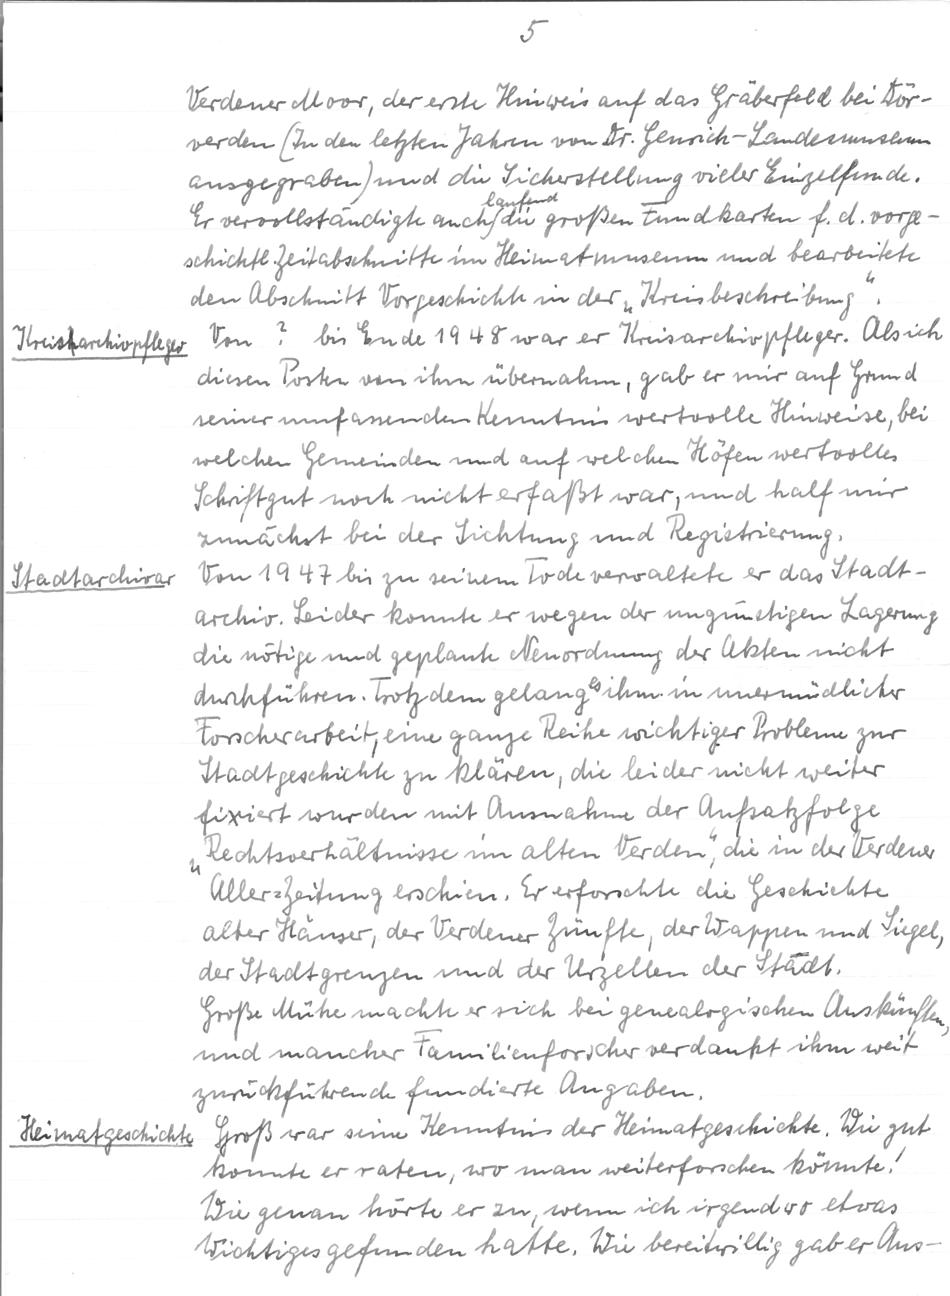 5
Verdener Moor, der erste Hinweis auf das Gräberfeld bei Dör-
verden (In den letzten Jahren von Dr. Genrich-Landesmuseum
ausgegraben) und die Sicherstellung vieler Einzelfunde.
laufend
Er vervollständigte auch die großen Fundkarten f. d. vorge-
schichtl. Zeitabschnitte im Heimatmuseum und bearbeitete
den Abschnitt Vorgeschichte in der „Kreisbeschreibung“.
Kreisarchivpfleger Von ? bis Ende 1948 war er Kreisarchivpfleger. Als ich
diesen Posten von ihm übernahm, gab er mir auf Grund
seiner umfassenden Kenntnis wertvolle Hinweise, bei
welchen Gemeinden und auf welchen Höfen wertvolles
Schriftgut noch nicht erfaßt war, und half mir
zunächst bei der Sichtung und Registrierung.
Stadtarchivar Von 1947 bis zu seinem Tode verwaltete er das Stadt-
archiv. Leider konnte er wegen der ungünstigen Lagerung
die nötige und geplante Neuordnung der Akten nicht
durchführen. Trotzdem gelang es ihm in unermüdlicher
Forscherarbeit, eine ganze Reihe wichtiger Probleme zur
Stadtgeschichte zu klären, die leider nicht weiter
fixiert wurden mit Ausnahme der Aufsatzfolge
„Rechtsverhältnisse im alten Verden“, die in der Verdener
Aller=Zeitung erschien. Er erforschte die Geschichte
alter Häuser, der Verdener Zünfte, der Wappen und Siegel,
der Stadtgrenzen und der Urzellen der Stadt.
Große Mühe machte er sich bei genealogischen Auskünften,
und mancher Familienforscher verdankt ihm weit
zurückführende fundierte Angaben.
Heimatgeschichte Groß war seine Kenntnis der Heimatgeschichte. Wie gut
konnte er raten, wo man weiterforschen könnte!
Wie genau hörte er zu, wenn ich irgendwo etwas
Wichtiges gefunden hatte. Wie bereitwillig gab er Aus-